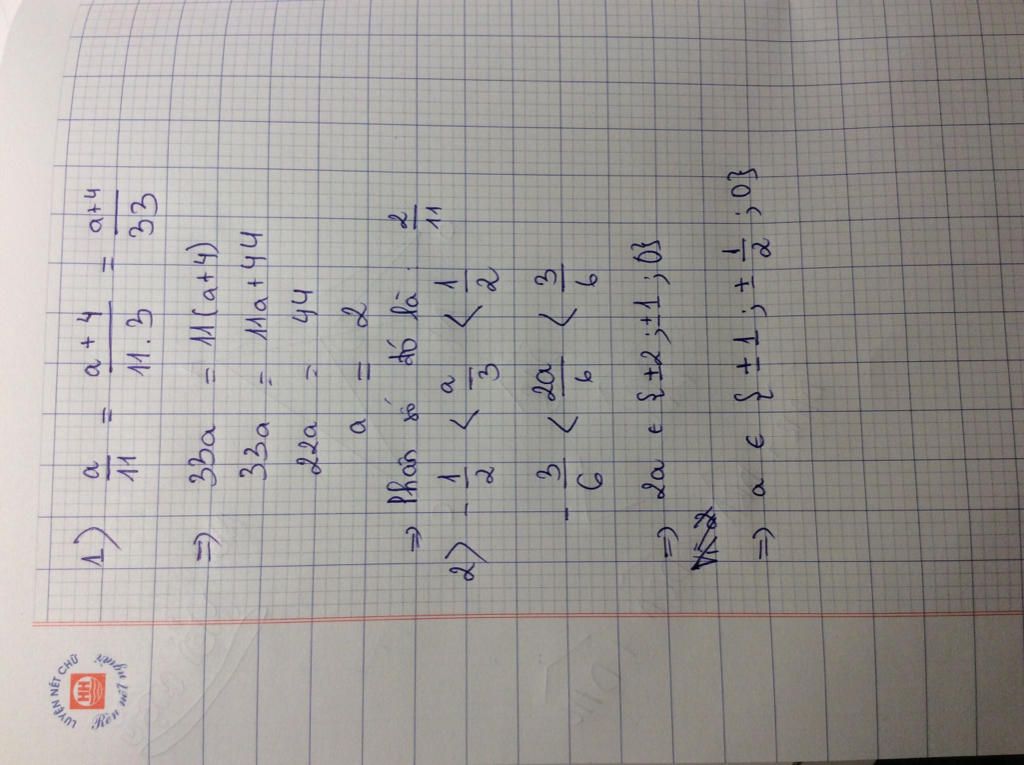 LUYỆN NÉT CHỮ
HH
Rèn nết người
1) a/11 = a+4/11.3 = a+4/33
=> 33a = 11(a+4)
33a = 11a+44
22a = 44
a = 2
=> Phân số đó là : 2/11
2) -1/2 < a/3 < 1/2
-3/6 < 2a/6 < 3/6
=> 2a ∈ {±2 ; ±1 ; 0}
=> a ∈ {±1 ; ±1/2 ; 0}